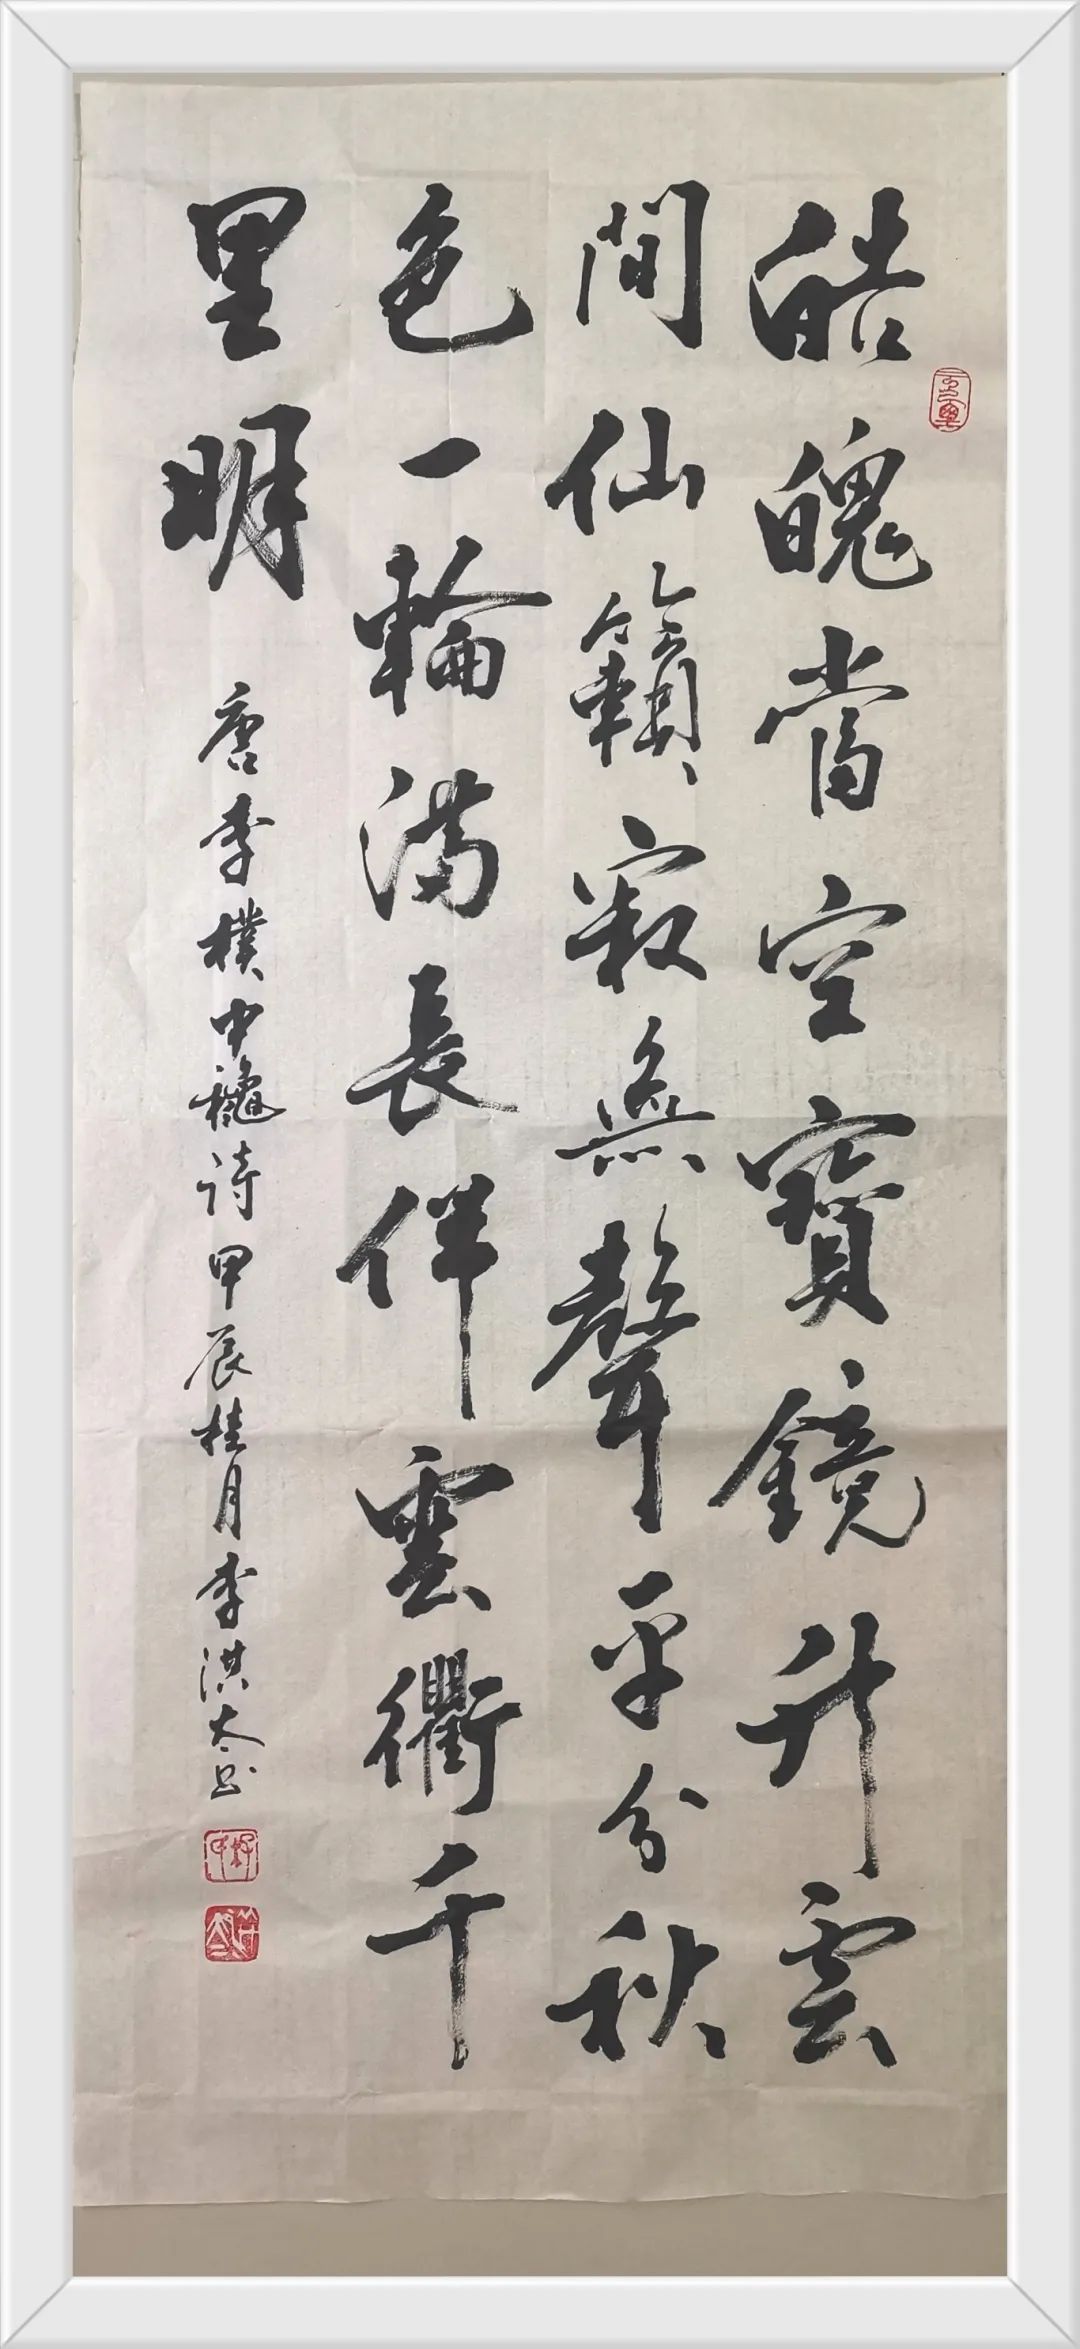 皓魄當空寶鏡升雲
間仙籟寂無聲平分秋
色一輪滿長伴雲衢千
里明
唐李樸中龝诗甲辰桂月李洪太书